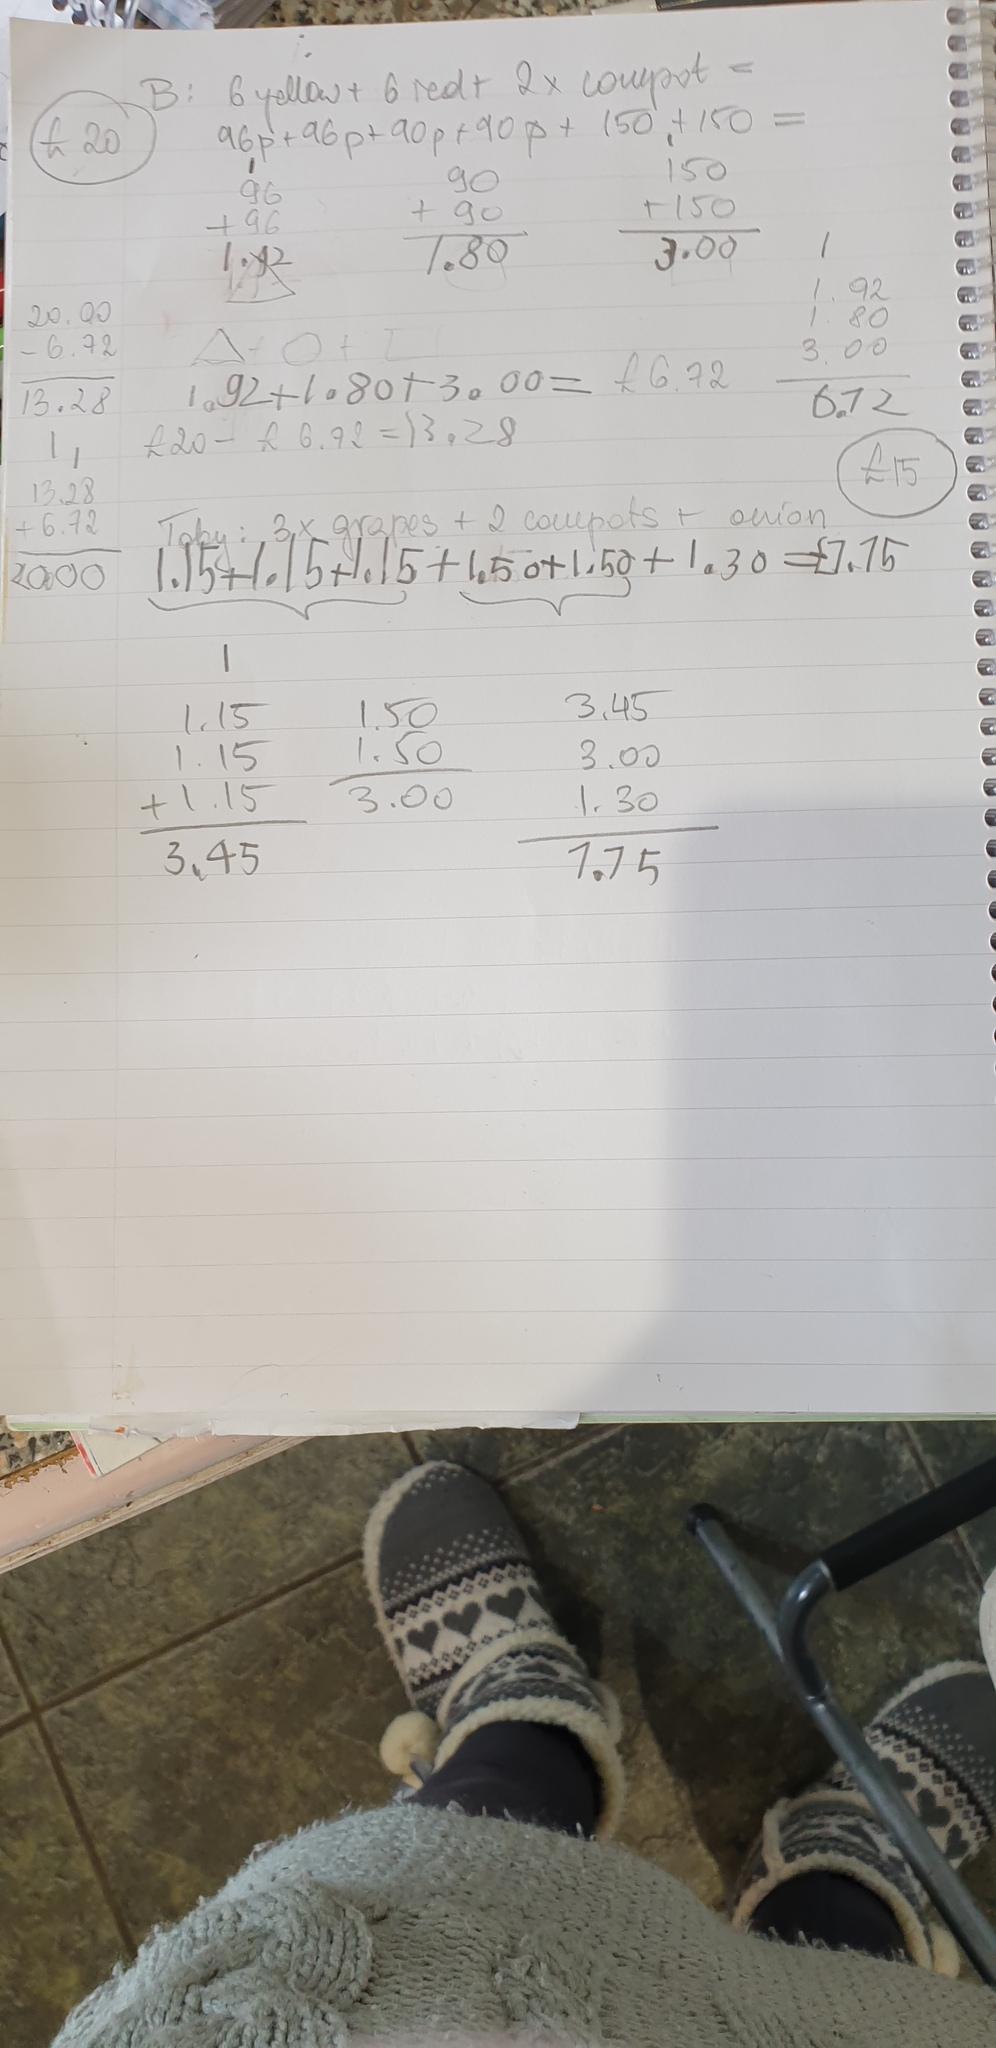 B: 6 yellow + 6 red + 2 x compot =
£ 20
96p + 96p + 90p + 90p + 150 + 150 =
1
96
+ 96
1.92
90
+ 90
1.80
1
150
+ 150
3.00
20.00
- 6.72
13.28
1
1.92
1.80
3.00
6.72
Δ + O + □
1.92 + 1.80 + 3.00 = £6.72
£20 - £6.72 = 13.28
1 1
13.28
+ 6.72
20.00
£15
Toby: 3x grapes + 2 compots + onion
1.15 + 1.15 + 1.15 + 1.50 + 1.50 + 1.30 = £7.75
1
1.15
1.15
+ 1.15
3.45
1.50
1.50
3.00
3.45
3.00
1.30
7.75